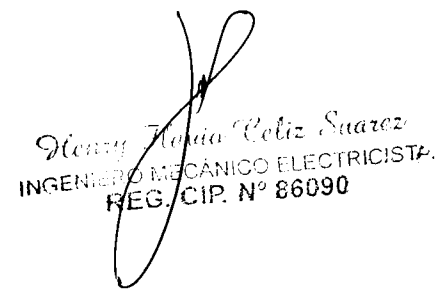 Henry Celiz Suarez
INGENIERO MECÁNICO ELECTRICISTA.
REG. CIP. Nº 86090